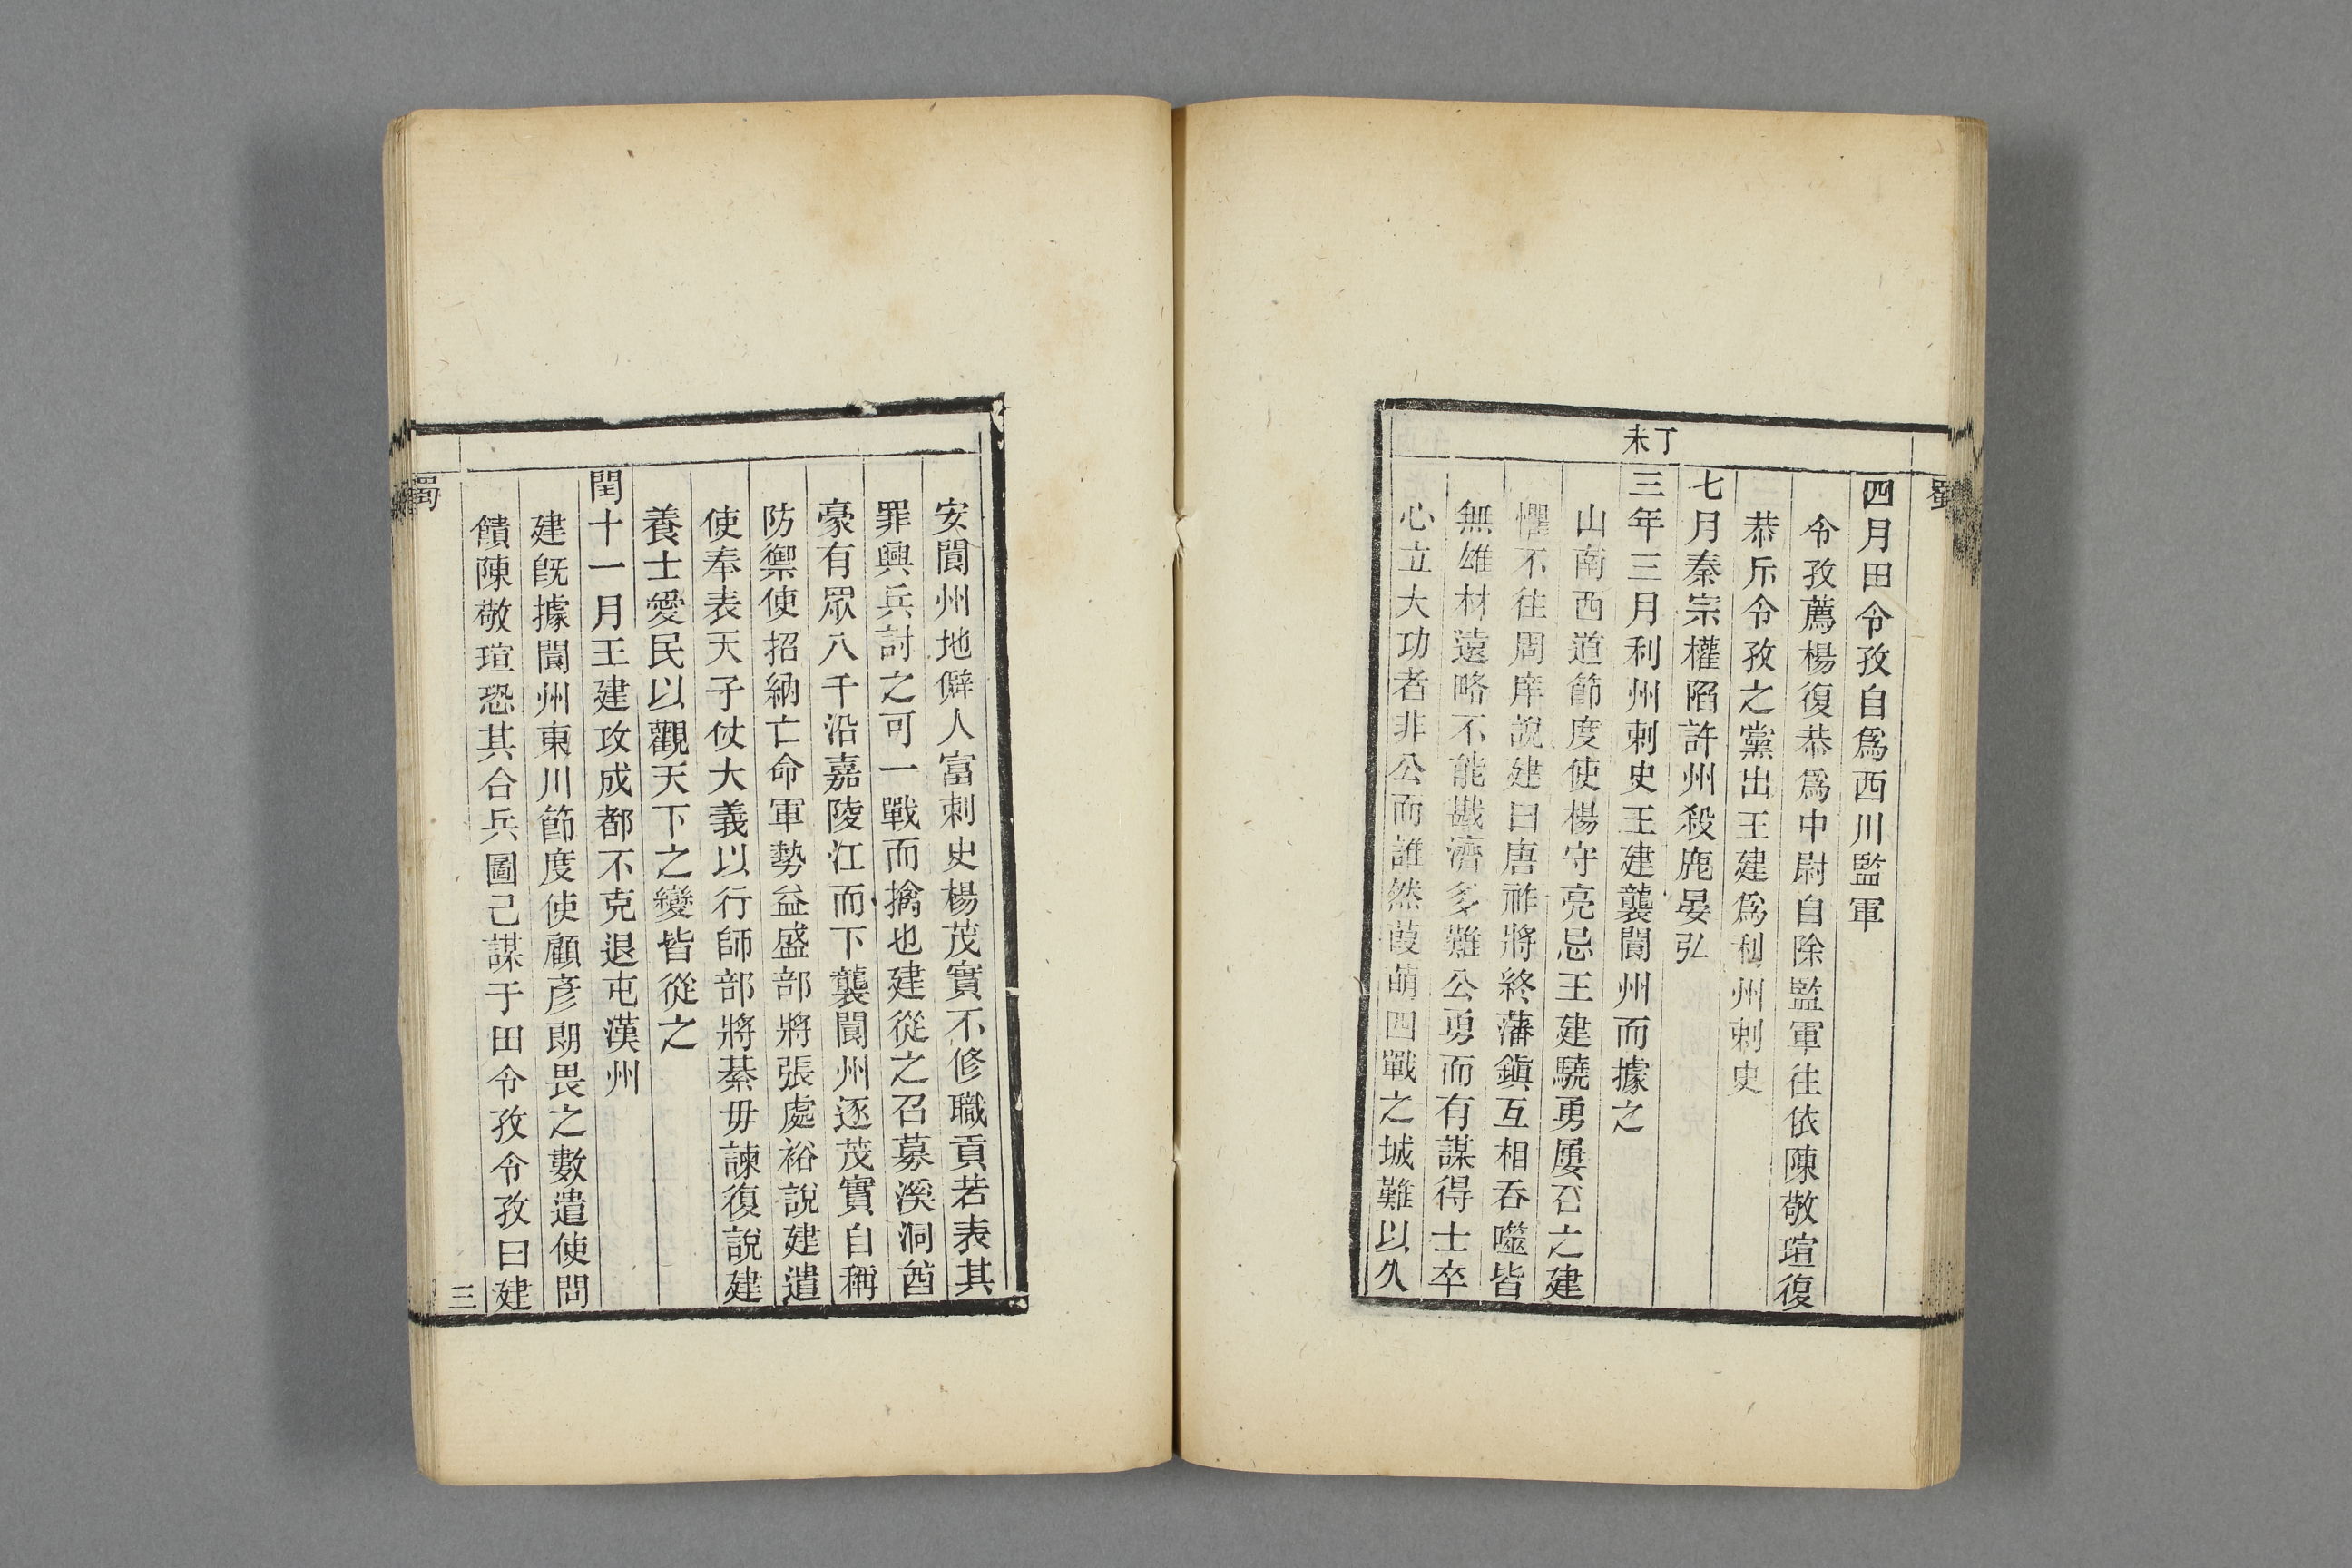 蜀
丁未
四月田令孜自爲西川監軍
令孜薦楊復恭爲中尉自除監軍往依陳敬瑄復
恭斥令孜之黨出王建爲利州刺史
七月秦宗權陷許州殺鹿晏弘
三年三月利州刺史王建襲閬州而據之
山南西道節度使楊守亮忌王建驍勇屢召之建
懼不往周庠說建曰唐祚將終藩鎭互相吞噬皆
無雄材遠略不能戡濟多難公勇而有謀得士卒
心立大功者非公而誰然葭萌四戰之城難以久
安閬州地僻人富刺史楊茂實不修職貢若表其
罪興兵討之可一戰而擒也建從之召募溪洞酋
豪有眾八千沿嘉陵江而下襲閬州逐茂實自稱
防禦使招納亡命軍勢益盛部將張處裕說建遣
使奉表天子仗大義以行師部將綦毋諫復說建
養士愛民以觀天下之變皆從之
閏十一月王建攻成都不克退屯漢州
建既據閬州東川節度使顧彥朗畏之數遣使問
饋陳敬瑄恐其合兵圖己謀于田令孜令孜曰建
蜀
三